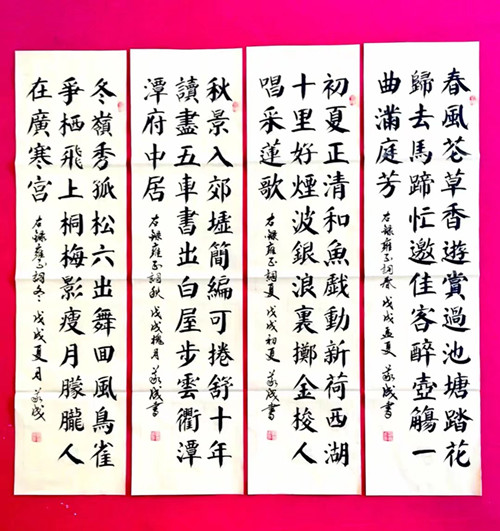 春風花草香遊賞過池塘踏花
歸去馬蹄忙邀佳客醉壺觴一
曲滿庭芳
右錄雍 詞春 戊戌孟夏 義成書
初夏正清和魚戲動新荷西湖
十里好煙波銀浪裏擲金梭人
唱采蓮歌
右錄雍 詞夏 戊戌初夏 義成書
秋景入郊墟簡編可捲舒十年
讀盡五車書出白屋步雲衢潭
潭府中居
右錄雍 詞秋 戊戌槐月 義成書
冬嶺秀孤松六出舞囬風鳥雀
爭栖飛上桐梅影瘦月朦朧人
在廣寒宮
右錄雍 詞冬 戊戌夏月 義成